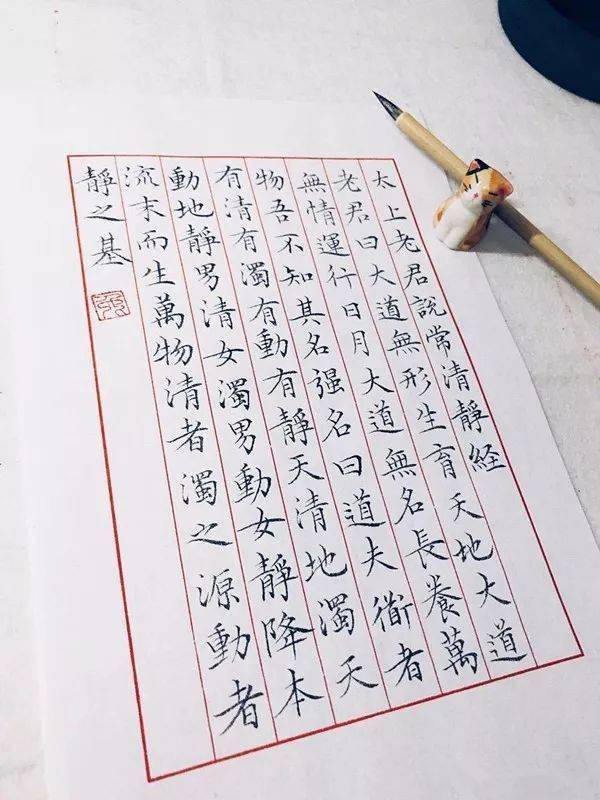 太上老君說常清靜経
老君曰大道無形生育天地大道
無情運行日月大道無名長養萬
物吾不知其名强名曰道夫衜者
有清有濁有動有靜天清地濁天
動地靜男清女濁男動女靜降本
流末而生萬物清者濁之源動者
靜之基